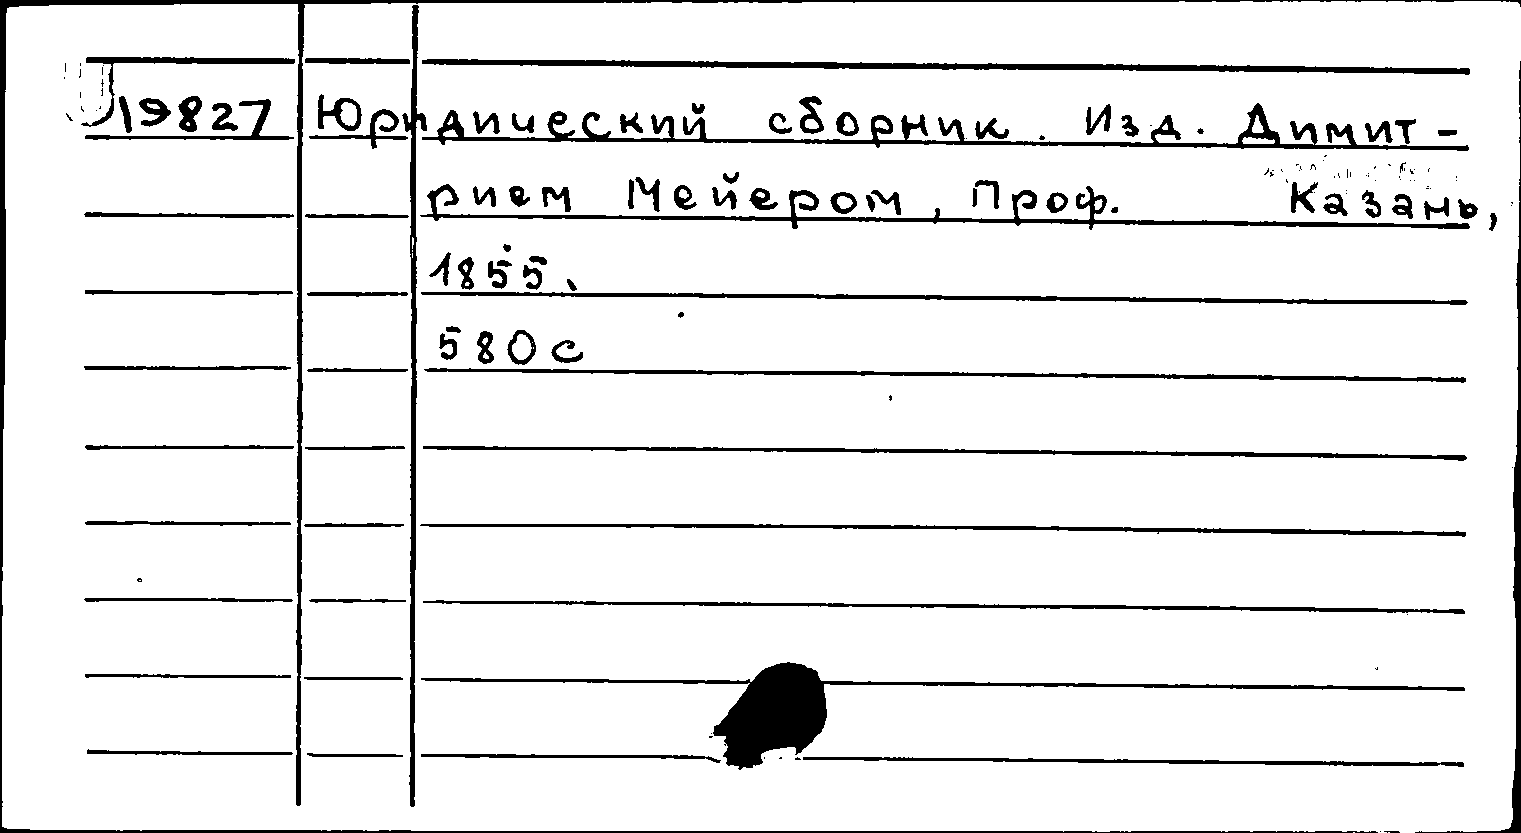 19827 Юридический сборник. Изд. Димит-
рием Мейером, Проф. Казань,
1855.
580 с